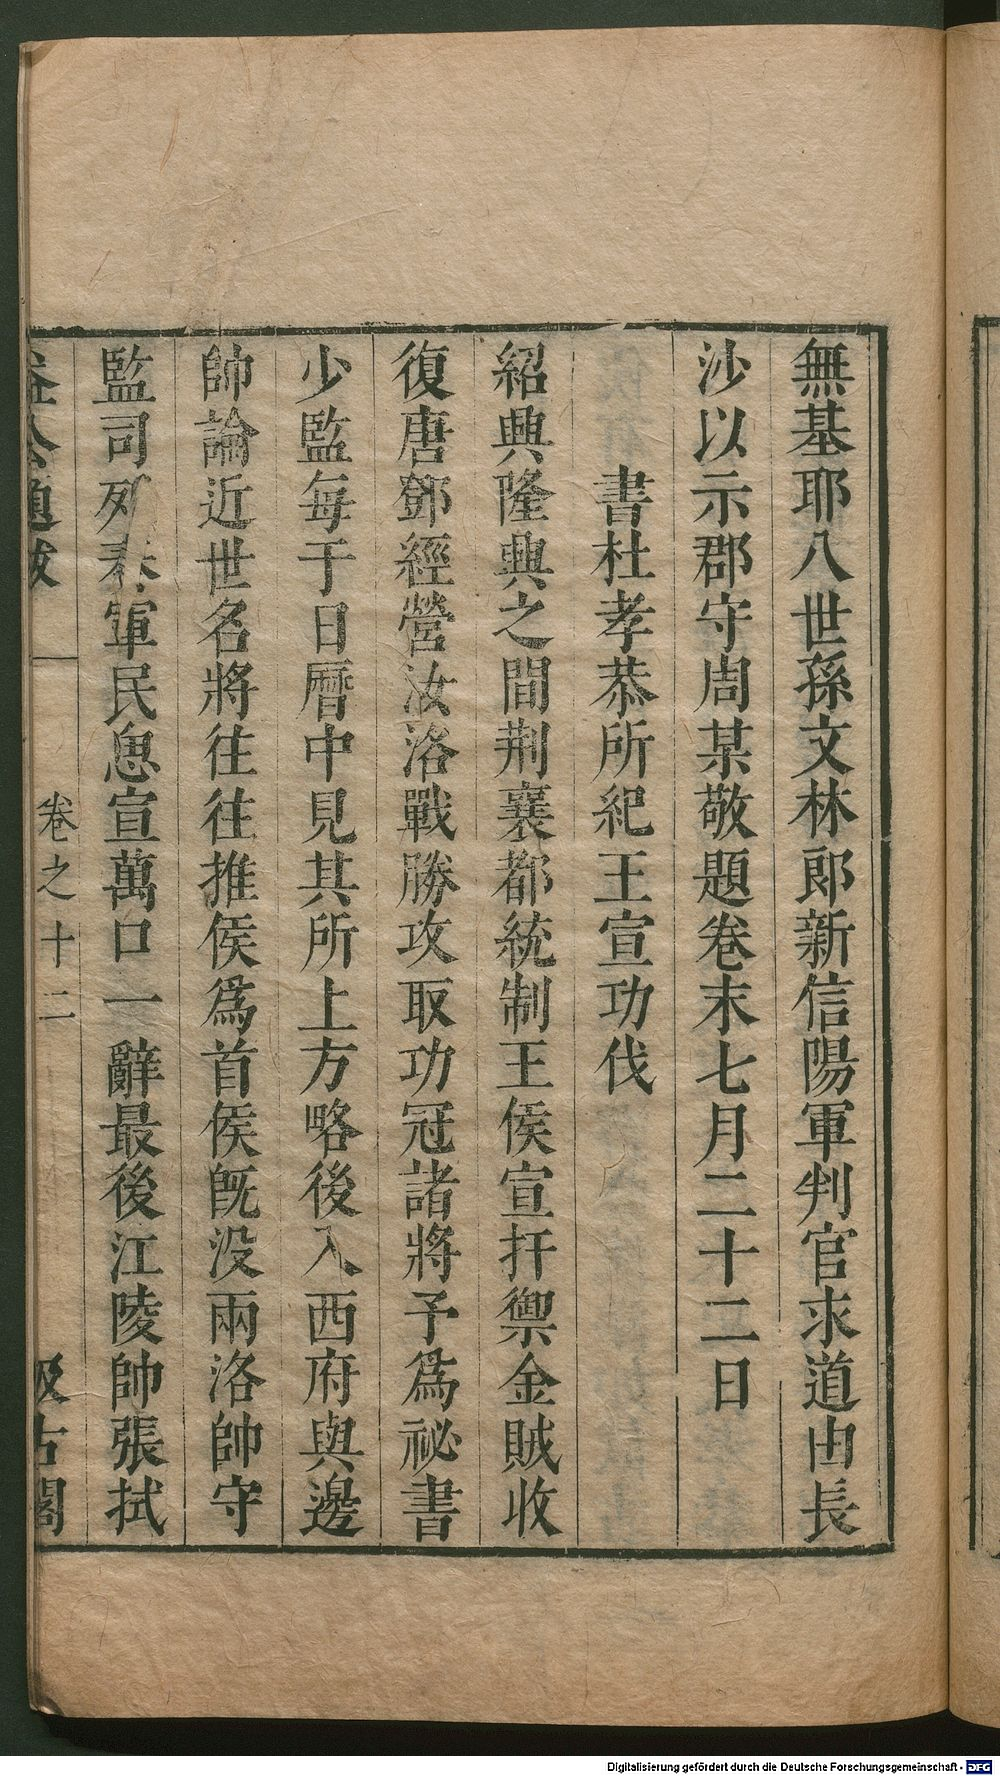 無基耶八世孫文林郎新信陽軍判官求道由長
沙以示郡守周某敬題卷末七月二十二日
書杜孝恭所紀王宣功伐
紹興隆興之間荆襄都統制王侯宣扞禦金賊收
復唐鄧經營汝洛戰勝攻取功冠諸將予爲祕書
少監每于日曆中見其所上方略後入西府與邊
帥論近世名將往往推侯爲首侯旣没兩洛帥守
監司列奏軍民恖宣萬口一辭最後江陵帥張拭
益公題跋 卷之十二 汲古閣
Digitalisierung gefördert durch die Deutsche Forschungsgemeinschaft - DFG